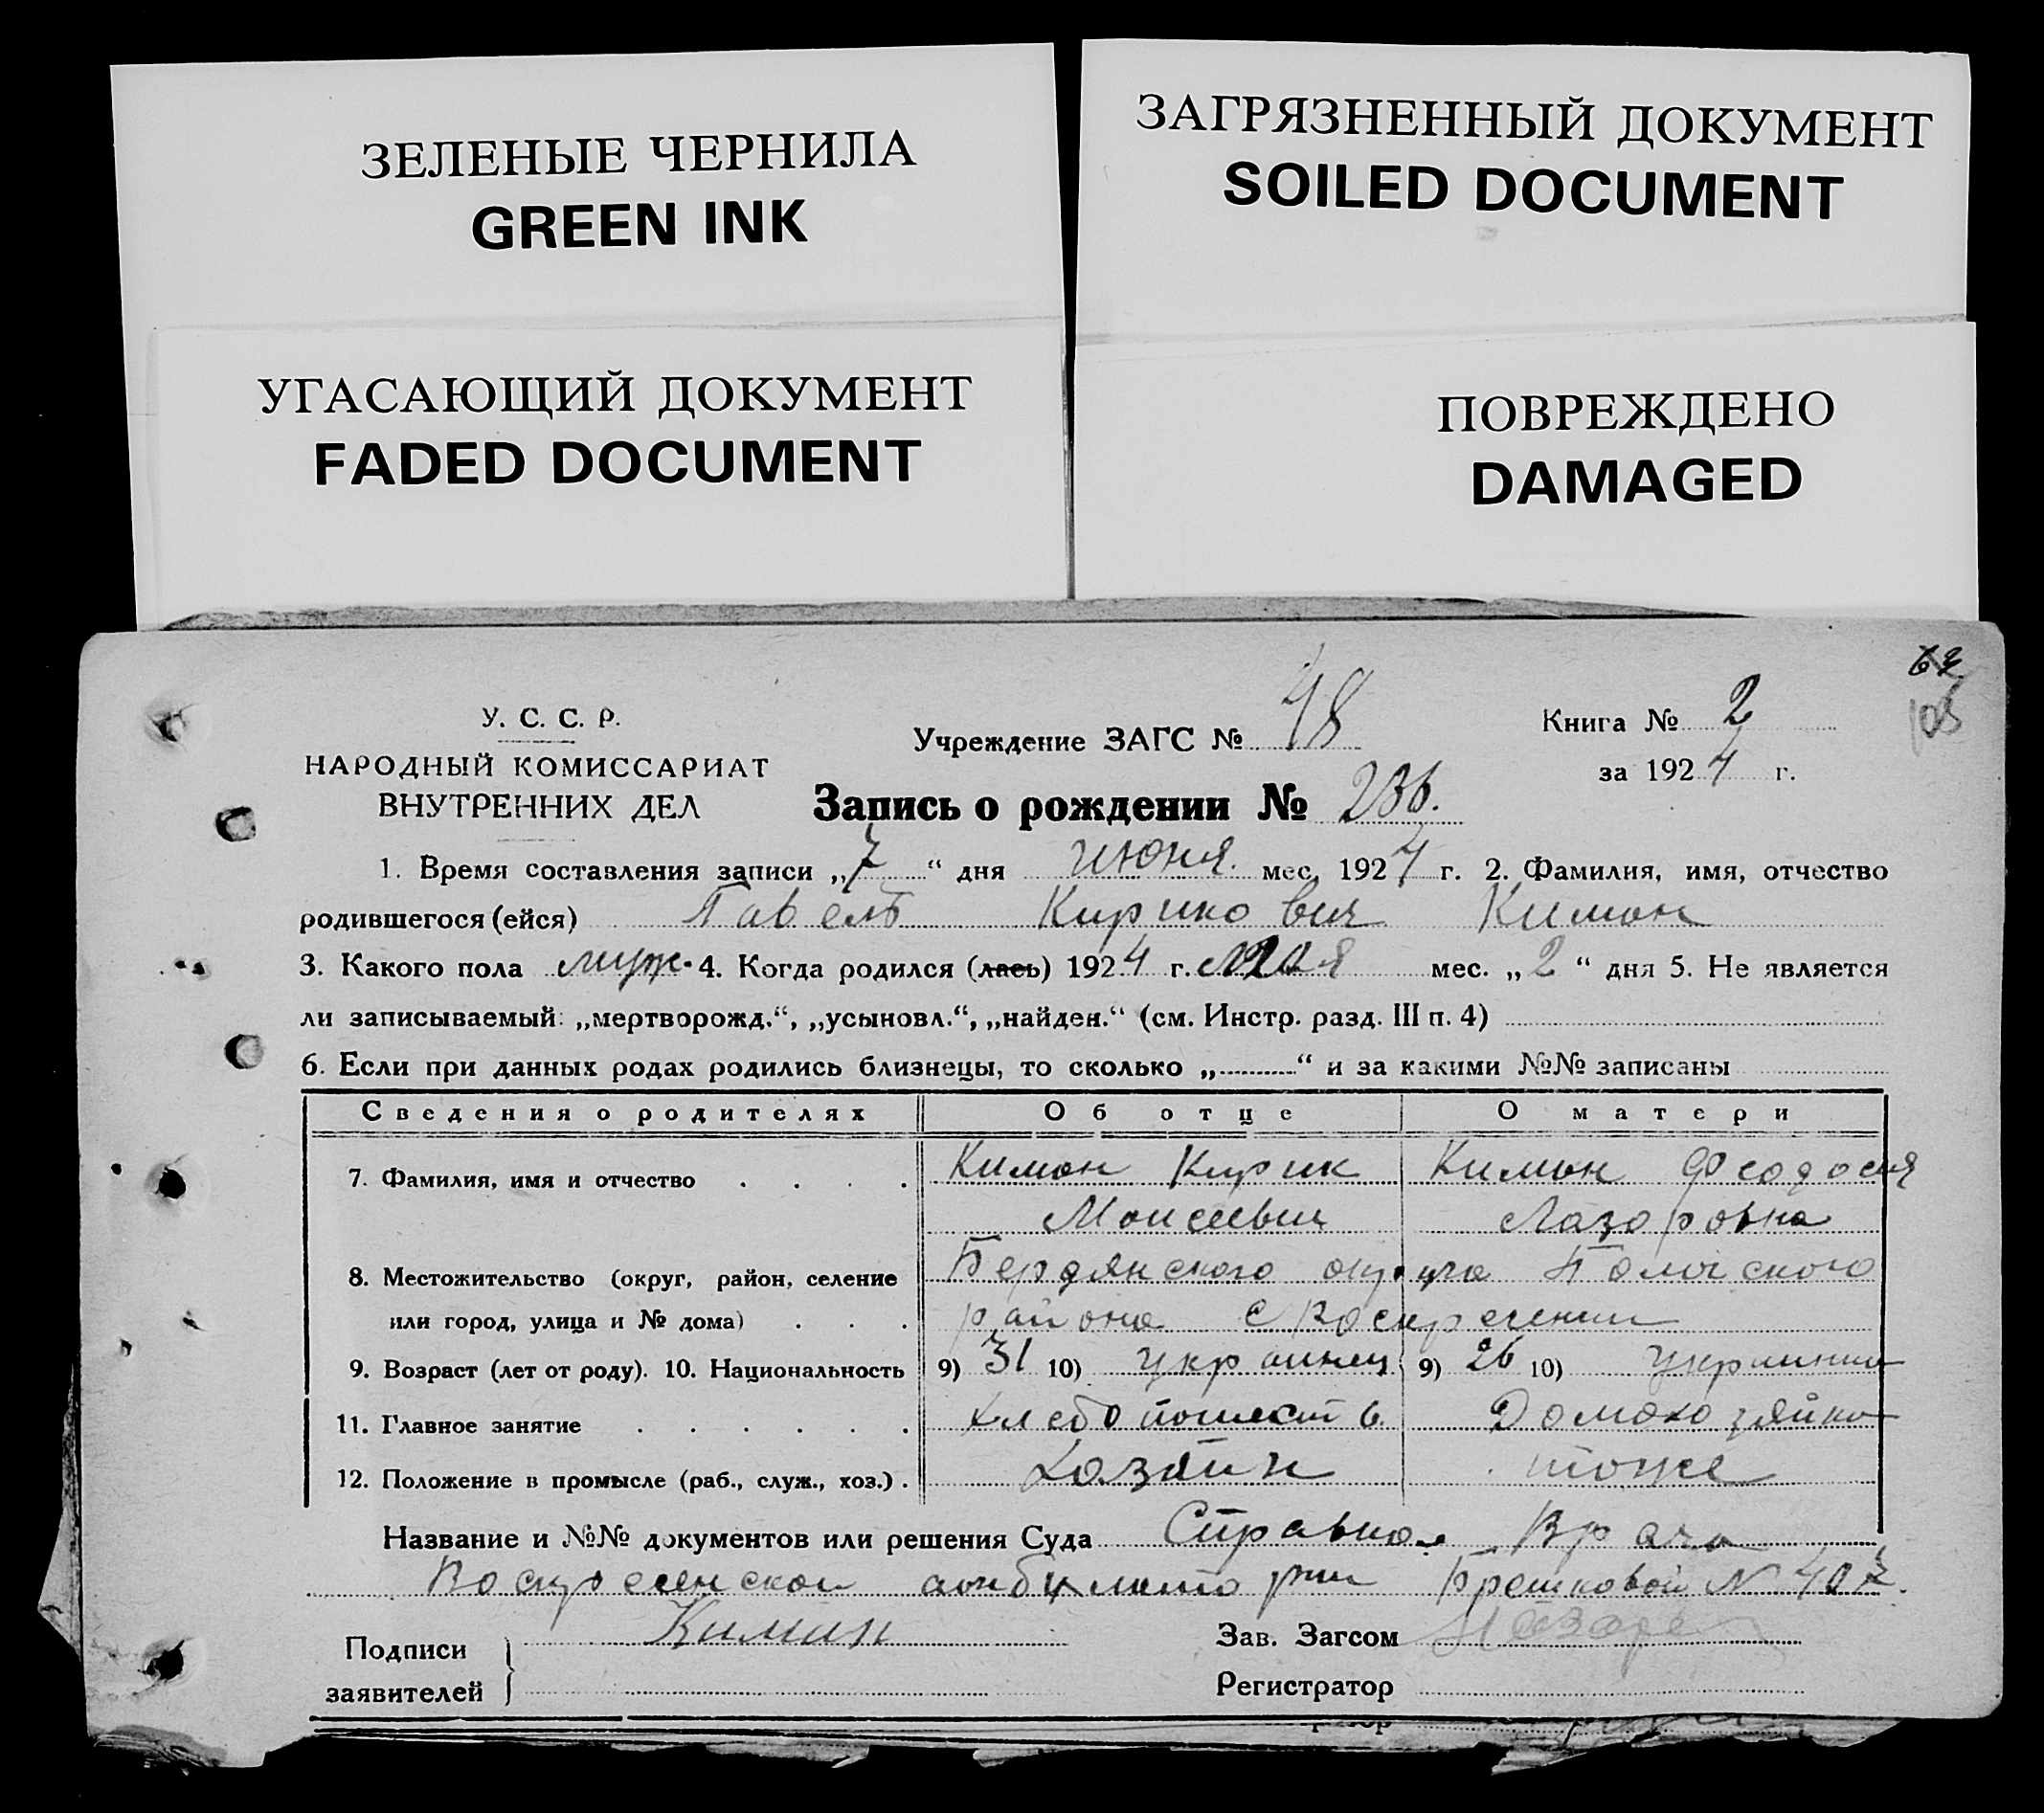 ЗЕЛЕНЫЕ ЧЕРНИЛА
GREEN INK
ЗАГРЯЗНЕННЫЙ ДОКУМЕНТ
SOILED DOCUMENT
УГАСАЮЩИЙ ДОКУМЕНТ
FADED DOCUMENT
ПОВРЕЖДЕНО
DAMAGED
У. С. С. Р.
НАРОДНЫЙ КОМИССАРИАТ
ВНУТРЕННИХ ДЕЛ
Учреждение ЗАГС № 48
Книга № 2
за 1924 г.
Запись о рождении № 236.
1. Время составления записи „7“ дня июня. мес. 1924 г. 2. Фамилия, имя, отчество
родившегося (ейся) Павелъ Кирикович Кимон
3. Какого пола муж. 4. Когда родился (лась) 1924 г. мая мес. „2“ дня 5. Не является
ли записываемый: „мертворожд.“, „усыновл.“, „найден.“ (см. Инстр. разд. III п. 4)
6. Если при данных родах родились близнецы, то сколько „ “ и за какими №№ записаны
Сведения о родителях Об отце О матери
7. Фамилия, имя и отчество Кимон Кирик Кимон Феодосия
Моисеевич Лазаровна
8. Местожительство (округ, район, селение Бердянского округа Пологского
или город, улица и № дома) района с Воскресении
9. Возраст (лет от роду). 10. Национальность 9) 31 10) украинец 9) 26 10) украинка
11. Главное занятие Домохозяйка
12. Положение в промысле (раб., служ., хоз.) Хозяин тоже
Название и №№ документов или решения Суда Справка Врача
Воскресенской амбулатории Брешковой N 407.
Подписи Кимон Зав. Загсом
заявителей Регистратор